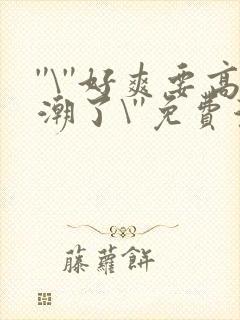 "\"好爽要高
潮了\"免費
藤蘿餅